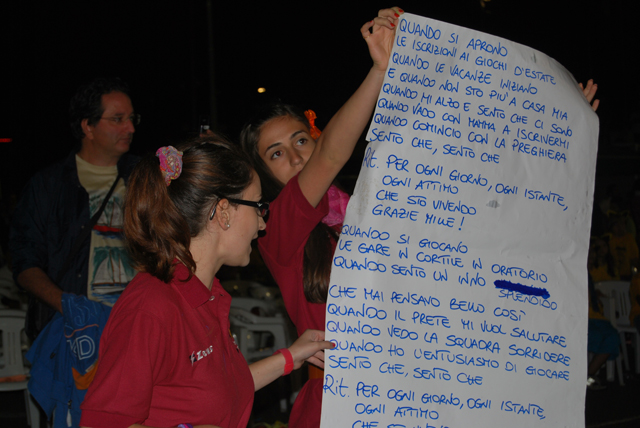 QUANDO SI APRONO
LE ISCRIZIONI AI GIOCHI D'ESTATE
QUANDO LE VACANZE INIZIANO
E QUANDO NON STO PIU' A CASA MIA
QUANDO MI ALZO E SENTO CHE CI SONO
QUANDO VADO CON MAMMA A ISCRIVERMI
QUANDO COMINCIO CON LA PREGHIERA
SENTO CHE, SENTO CHE
Rit. PER OGNI GIORNO, OGNI ISTANTE,
OGNI ATTIMO
CHE STO VIVENDO
GRAZIE MILLE!
QUANDO SI GIOCANO
LE GARE IN CORTILE IN ORATORIO
QUANDO SENTO UN INNO
SPLENDIDO
CHE MAI PENSAVO BELLO COSÌ
QUANDO IL PRETE MI VUOL SALUTARE
QUANDO VEDO LA SQUADRA SORRIDERE
QUANDO HO L'ENTUSIASMO DI GIOCARE
SENTO CHE, SENTO CHE
Rit. PER OGNI GIORNO, OGNI ISTANTE,
OGNI ATTIMO